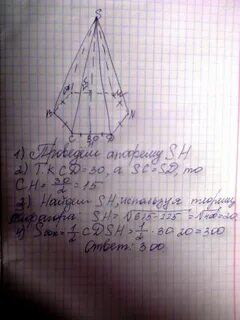 S
B
N
C
30
D
1) Проведём апофему SH
2) Т.К CD=30, а SC=SD, то
CH = 30/2 = 15
3) Найдём SH, используя теорему
Пифагора: SH=√625-225 = √400=20
4) Sбок=1/2 CDSH=1/2·30·20=300
Ответ: 300